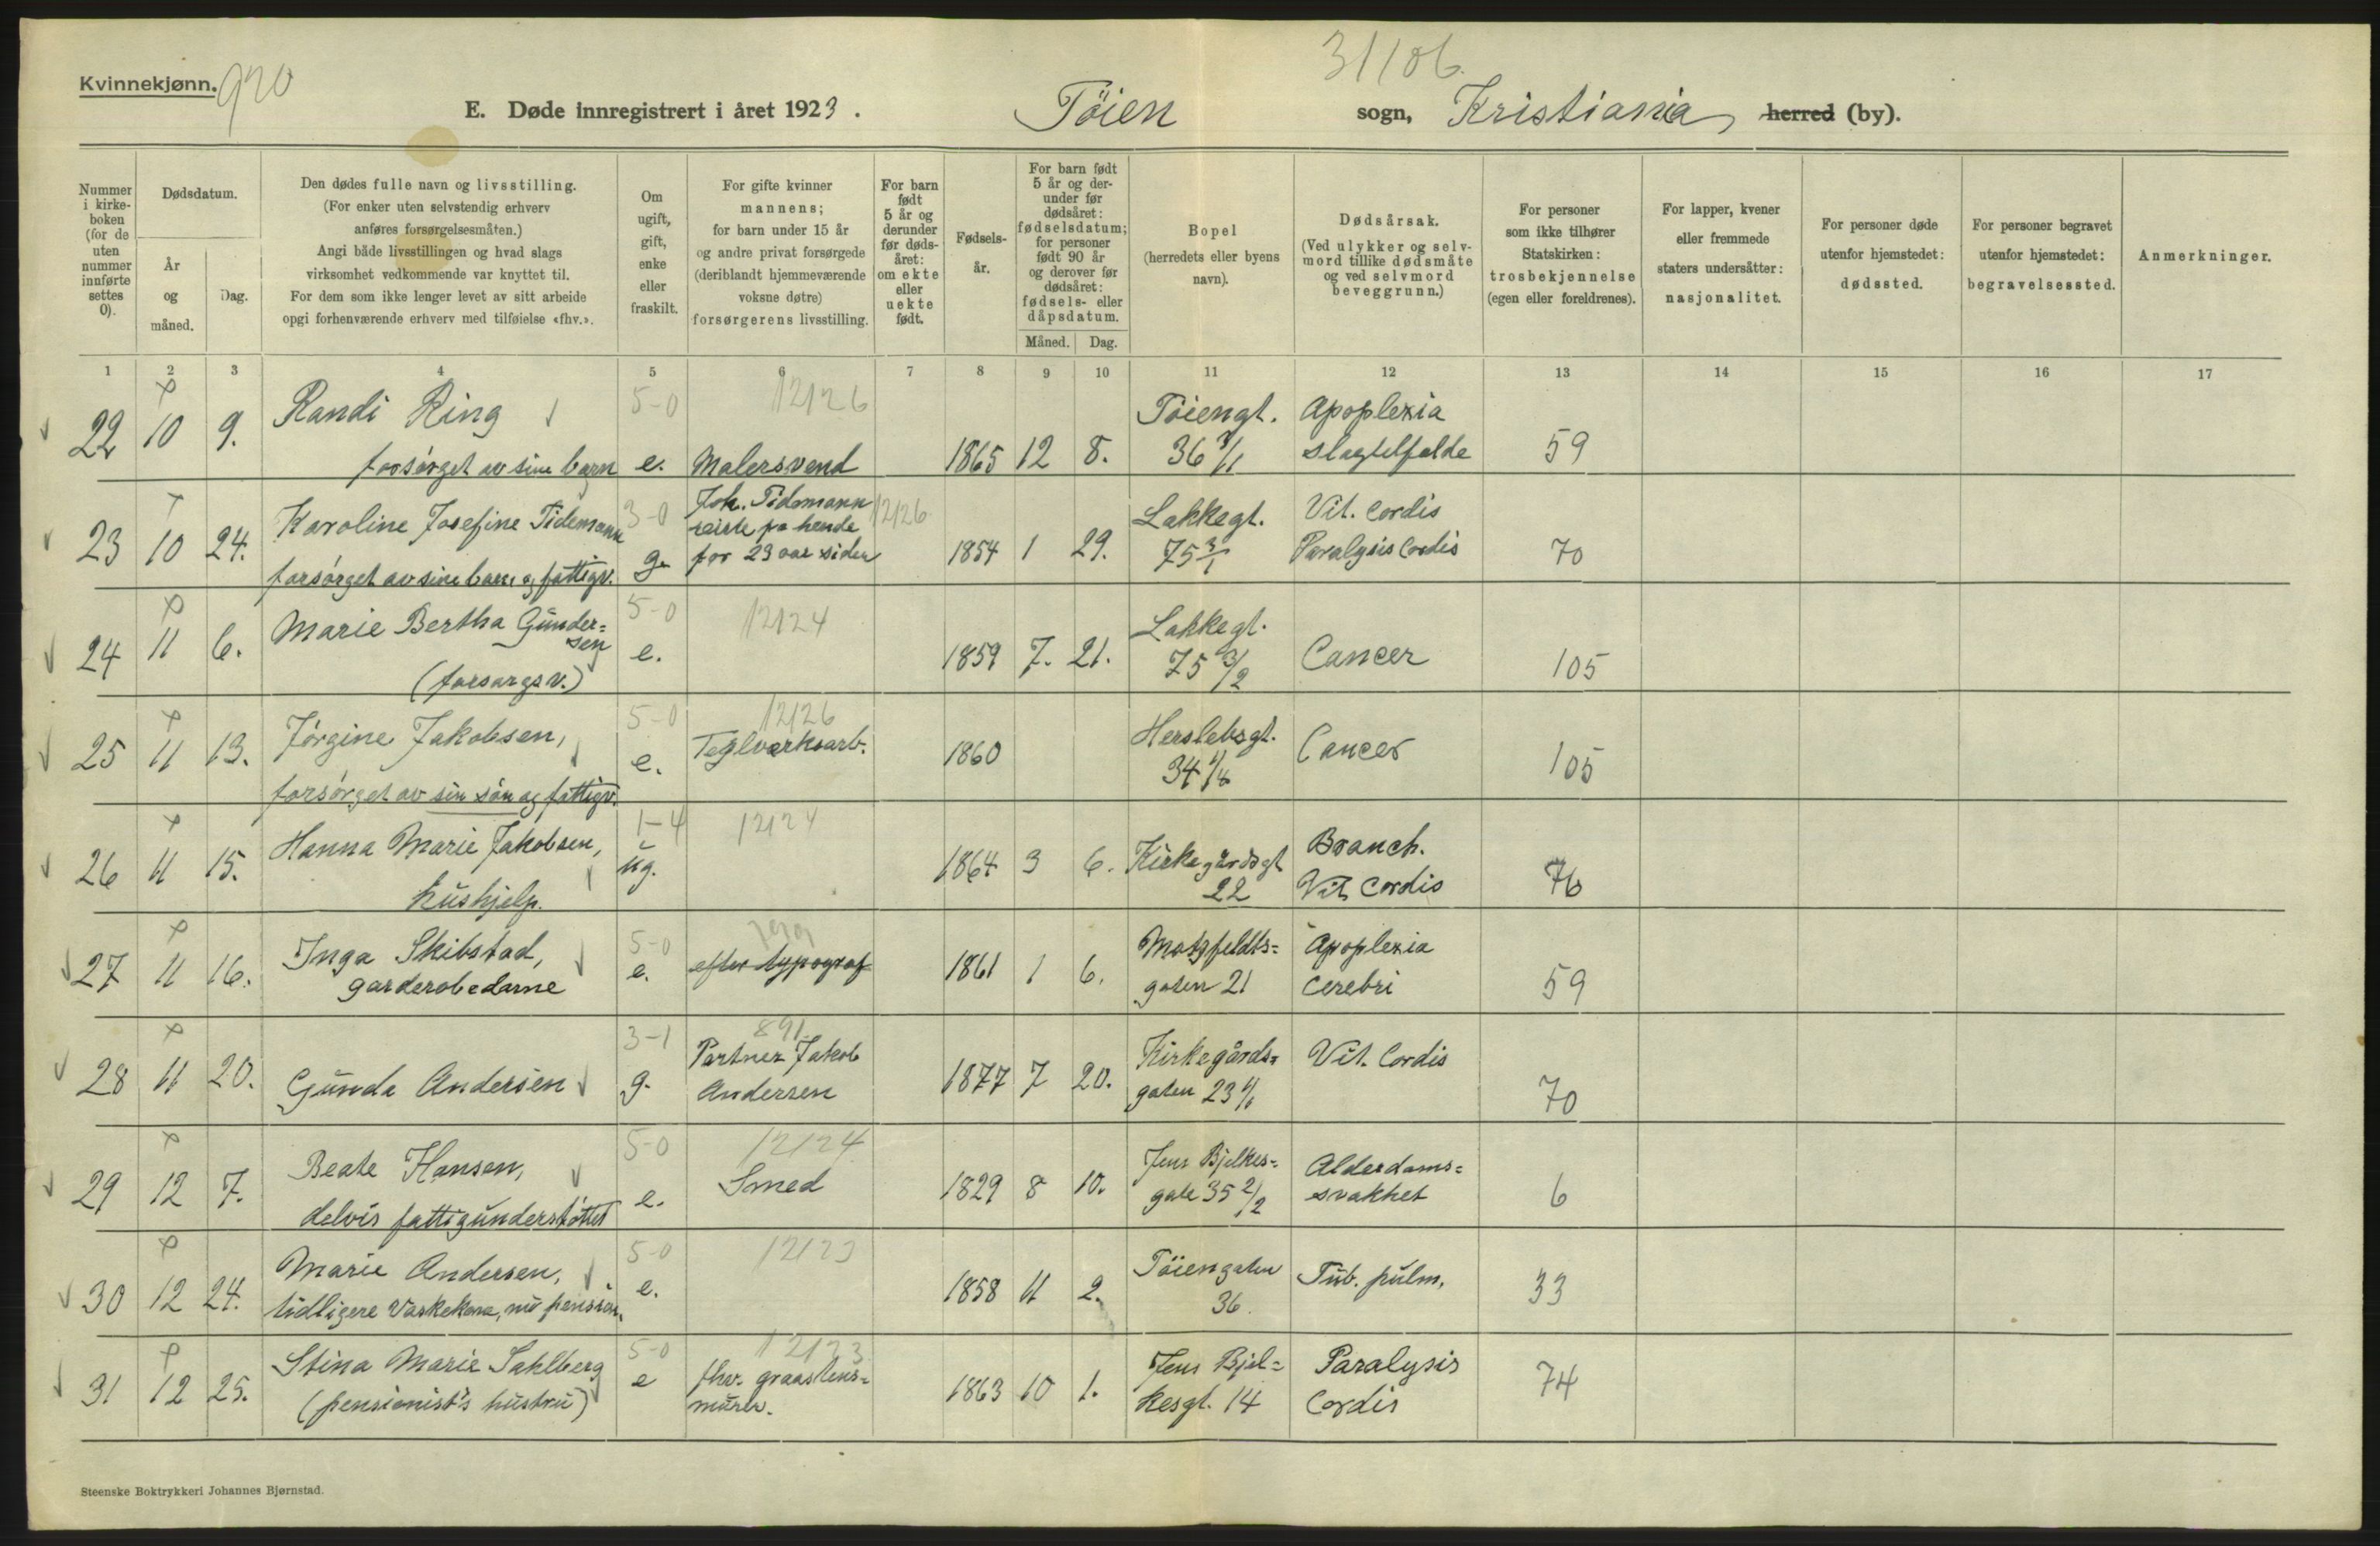 Kvinnekjønn. 920
31106.
E. Døde innregistrert i året 1923. Töien sogn, Kristiania herred (by).
Nummer i kirkeboken (for de uten nummer innførte settes 0).
Dødsdatum.
År og måned.
Dag.
Den dødes fulle navn og livsstilling.
(For enker uten selvstendig erhverv
anføres forsørgelsesmåten.)
Angi både livsstillingen og hvad slags
virksomhet vedkommende var knyttet til.
For dem som ikke lenger levet av sitt arbeide
opgi forhenværende erhverv med tilføielse «fhv.».
Om ugift, gift, enke eller fraskilt.
For gifte kvinner
mannens;
for barn under 15 år
og andre privat forsørgede
(deriblandt hjemmeværende
voksne døtre)
forsørgerens livsstilling.
For barn født 5 år og derunder før dødsåret: om ekte eller uekte født.
Fødselsår.
For barn født 5 år og derunder før dødsåret: fødselsdatum; for personer født 90 år og derover før dødsåret: fødsels- eller dåpsdatum.
Måned. Dag.
Bopel
(herredets eller byens
navn).
Dødsårsak.
(Ved ulykker og selvmord tillike dødsmåte og ved selvmord beveggrunn.)
For personer
som ikke tilhører
Statskirken:
trosbekjennelse
(egen eller foreldrenes).
For lapper, kvener
eller fremmede
staters undersåtter:
nasjonalitet.
For personer døde
utenfor hjemstedet:
dødssted.
For personer begravet
utenfor hjemstedet:
begravelsessted.
Anmerkninger.
1 2 3 4 5 6 7 8 9 10 11 12 13 14 15 16 17
Randi Ring 5-0 12126 Töiengt. Apoplexia
22 10 9. forsörget av sine barn e. Malersvend 1865 12 8. 36 3/1 slagtilfelde 59
Karoline Josefine Tidemann 3-0 Joh. Tidemann 12126 Lakkegt. Vit. Cordis
reiste fra hende
23 10 24. forsörget av sine barn og fattigv. g. for 23 aar siden 1854 1 29. 75 3/1 Paralysis Cordis 70
Marie Bertha Gunder= 5-0 12124 Lakkegt.
sen
24 11 6. (forsorgsv.) e. 1859 7. 21. 75 3/2 Cancer 105
Jörgine Jakobsen, 5-0 12126 Herslebsgt.
25 11 13. forsörget av sin sön og fattigv. e. Teglverksarb. 1860 34 Cancer 105
Hanna Marie Jakobsen, 1-4 12124 Kirkegårdsgt Branch.
26 11 15. hushjelp. ug. 1864 3 6. 22 Vit. Cordis 76
Inga Skibstad, 5-0 Motzfeldts= Apoplexia
27 11 16. garderobedame e. efter typograf 1861 1 6. gaten 21 cerebri 59
3-1 891 Partner Jakob Kirkegårds= Vit. Cordis
28 11 20. Gunda Andersen g. Andersen 1877 7 20. gaten 23 70
Beate Hansen, 5-0 12124 Jens Bjelkes= Alderdoms=
29 12 7. delvis fattigunderstöttet e. Smed 1829 8 10. gate 35 2/2 svakhet 6
Marie Andersen, 5-0 12123 Töiengaten
30 12 24. tidligere Vaskekone, nu pension. e. 1858 11 2. 36. Tub. pulm. 33
Stina Marie Sahlberg 5-0 12123 fhv. graastens= Jens Bjel= Paralysis
31 12 25. (pensionist's hustru) e murer. 1863 10 1. kesgt. 14 Cordis 74
Steenske Boktrykkeri Johannes Bjørnstad.